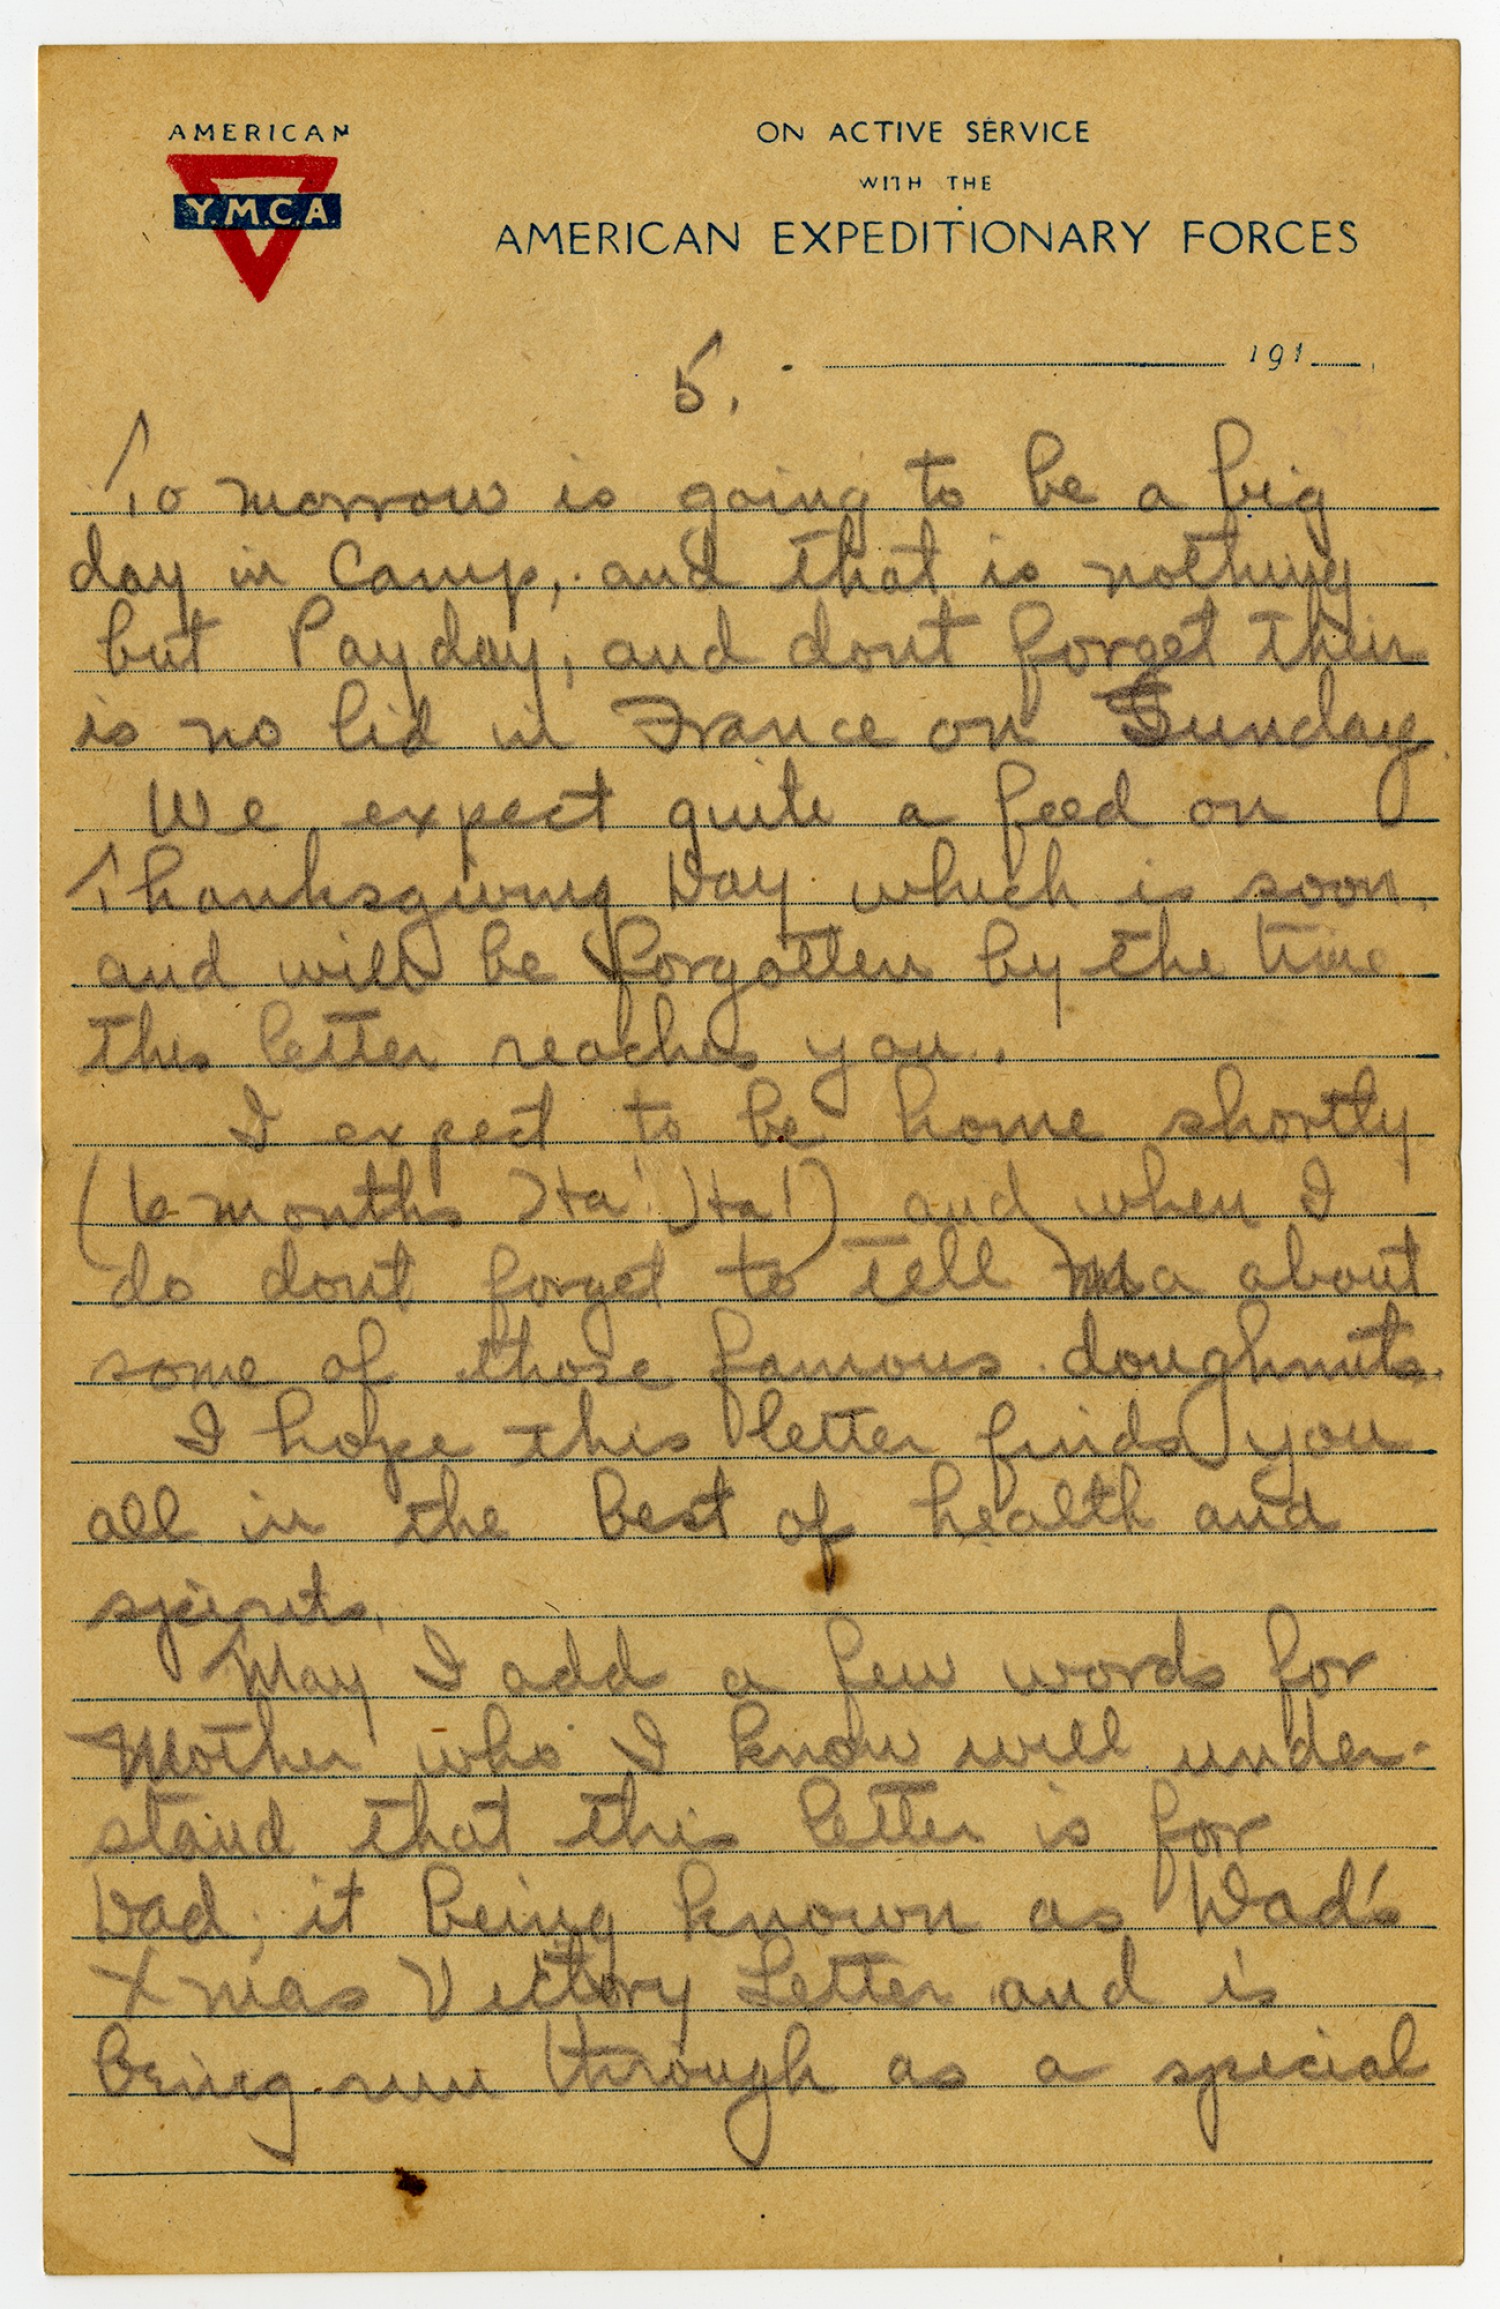 AMERICAN
Y.M.C.A.
ON ACTIVE SERVICE
WITH THE
AMERICAN EXPEDITIONARY FORCES
191
5.
To morrow is going to be a big
day in Camp, and that is nothing
but Payday, and dont forget their
is no lid in France on Sunday.
We expect quite a feed on
Thanksgiving Day which is soon,
and will be forgotten by the time
this letter reaches you.
I expect to be home shortly
(6 months Ha! Ha!) and when I
do dont forget to tell Ma about
some of those famous doughnuts.
I hope this letter finds you
all in the best of health and
spirits.
May I add a few words for
Mother who I know will under-
stand that this letter is for
Dad, it being known as Dad's
Xmas Victory Letter and is
being run through as a special